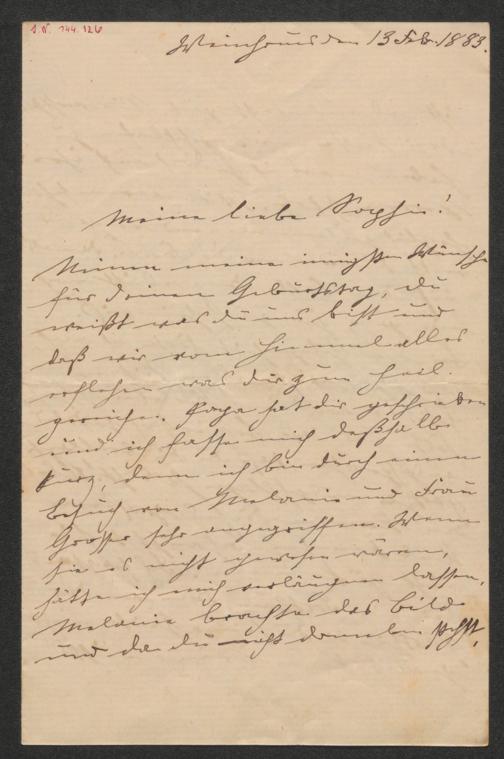 I.N. 144.126
Weinhaus den 13 Feb. 1883.
Meine liebe Sophie!
Nimm meine innigsten Wünsche
für deinen Geburtstag, du
weißt was du uns bist und
daß wir vom Himmel alles
erflehen was dir zum Heil
gereiche. Papa hat dir geschrieben
und ich fasse mich deßhalb
kurz, denn ich bin durch einen
Besuch von Melanie und Frau
Grosser sehr angegriffen. Wenn
sie es nicht gewesen wären,
hätte ich mich verläugnen lassen.
Melanie brachte das Bild
und da du nicht daneben stehst,